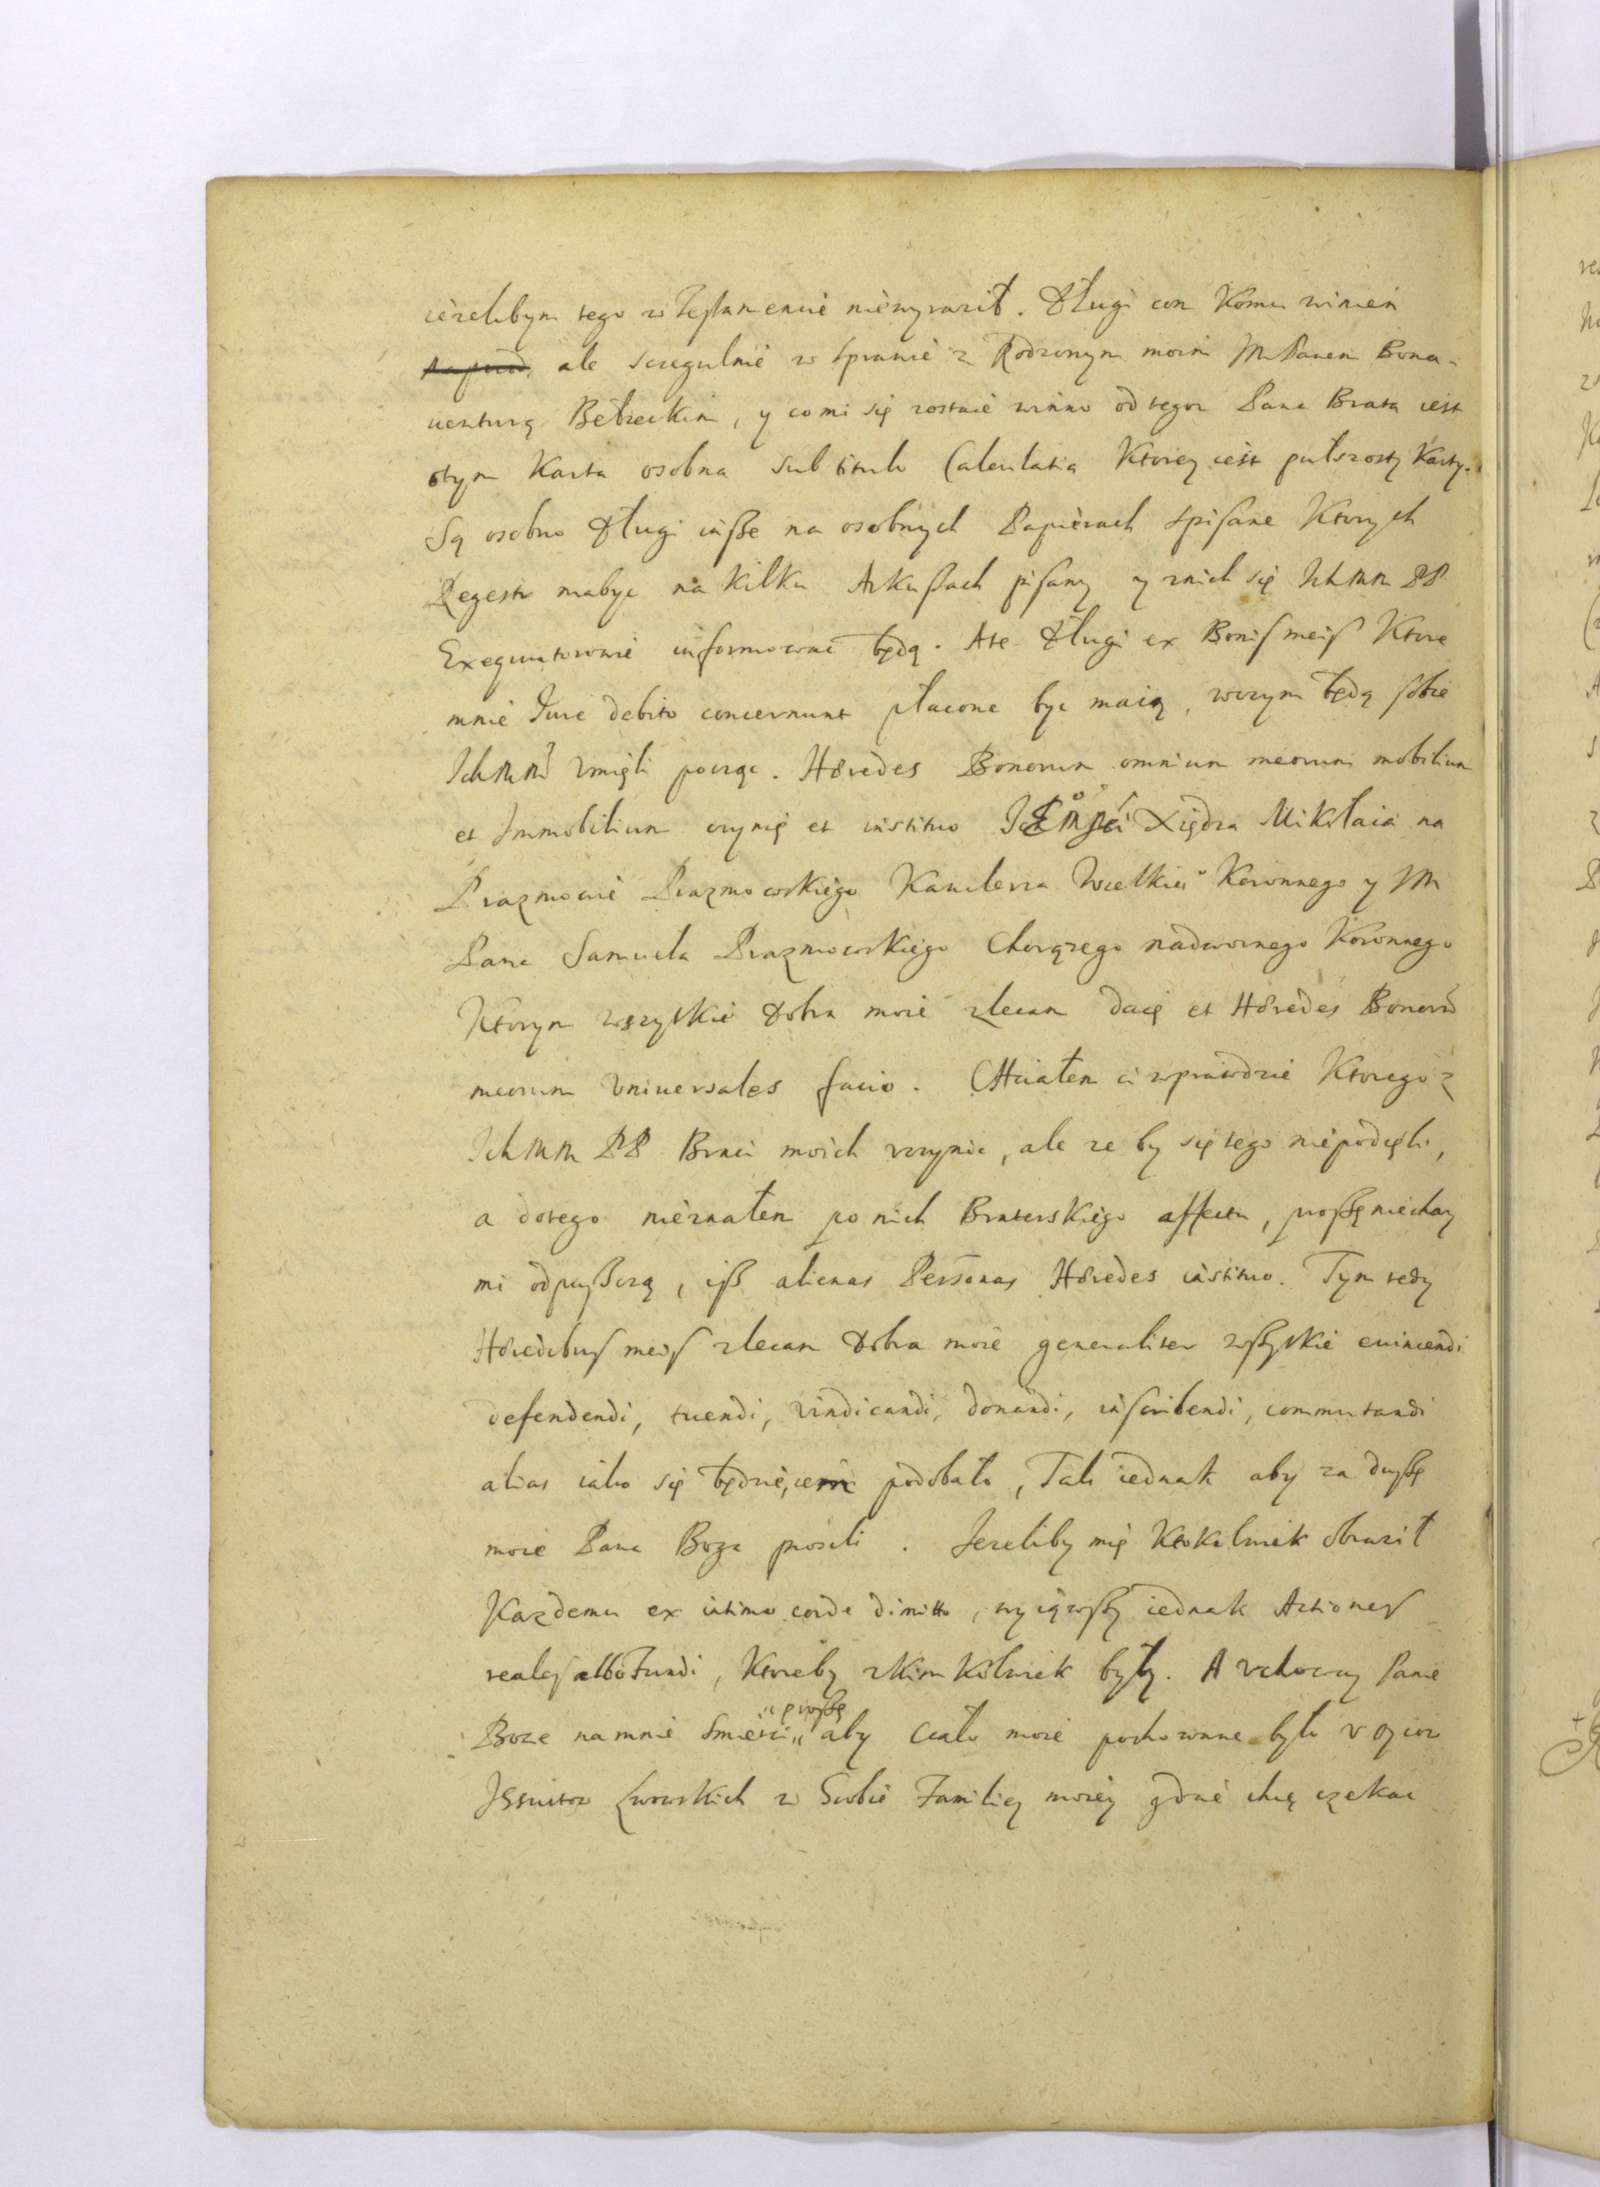 ieżelibym tego w Testamencie niewyraził. Długi com komu winien
ale szczegulnie w sprawie z Rodzonym moim JM Panem Bona-
uenturą Bełzeckim, y co mi się zostaie winno od tegoz Pana Brata iest
otym Karta osobna sub titulo Calculatia Ktorey iest pułszosty Karty.
Są osobno Długi insze na osobnych Papierach spisane Ktorych
Regestr mabyc na kilku Arkuszach pisany y znich się Ich MM PP
Exequutorowie informowac będą. Ate Długi ex Bonis meis Ktore
mnie Iure debito concernunt płacone byc maią, wczym będą sobie
Ich MM vmięli począc. Hæredes Bonorum omnium meorum mobilium
et Immobilium czynię et instituo Xiędza Mikołaia na
Prazmowie Prazmowskiego Kanclerza Wielkie° Koronnego y JM
Pana Samuela Prazmowskiego Chorązego nadwornego Koronnego
Ktorym wszytkie Dobra moie zlecam daię et Hæredes Bonorū
meorum Vniuersales facio. Chciałem ci wprawdzie Ktorego z
Ich MM PP Braci moich vczynic, ale ze by się tego niepodięli,
a dotego nieznałem po nich Braterskiego affectu, proszę niechay
mi odpuszczą, isz alienas Personas Hæredes instituo. Tym tedy
Hæredibus meis zlecam Dobra moie generaliter wszytkie euincendi
defendendi, tuendi, vindicandi, donandi, inscribendi, commutandi
alias iako się będzie, podobało, Tak iednak aby za duszę
moie Pana Boga prosili. Jezeliby mię Ktokolwiek obraził
Kazdemu ex intimo corde dimitto, wyiąwszy iednak Actiones
reales albo Fundi, Ktoreby zkim Kolwiek były. A vchoway Panie
Boze na mnie smierci " proszę " aby Ciało moie pochowane było v oycow
Jesuitow Lwowskich w Grobie Familiey moiey gdzie chcę czekac